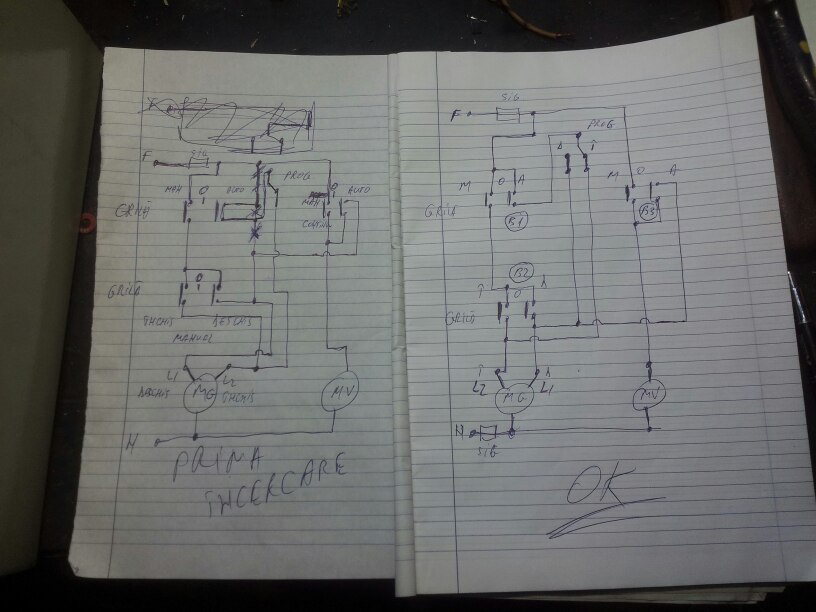 F
SIG
PROG
MAN O AUTO
O AUTO
MAN
GRILĂ
O
GRILĂ
ÎNCHIS DESCHIS
MANUAL
L1 L2
MG MV
DESCHIS ÎNCHIS
N
PRIMA
ÎNCERCARE
F SIG
PROG
D Î
M O A
M O A
GRILĂ
B1 B3
B2
Î O D
GRILĂ
Î D
L2 MG L1 MV
N
SIG
OK